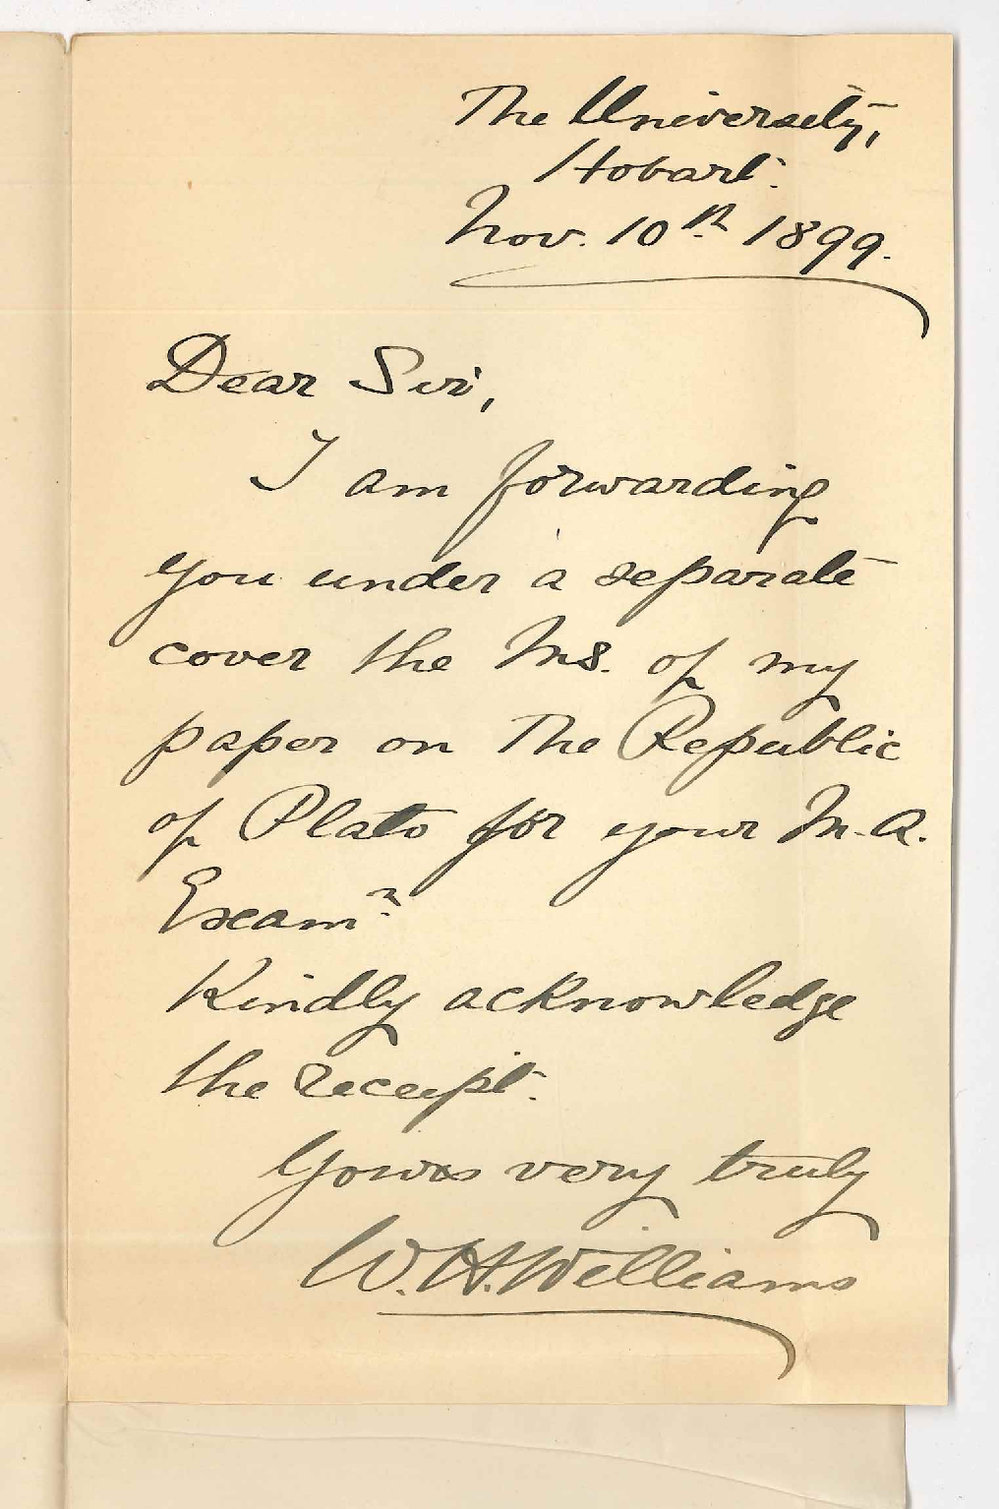 The University,
Hobart.
Nov. 10th 1899.
Dear Sir,
I am forwarding
you under a separate
cover the Ms. of my
paper on The Republic
of Plato for your M.A.
Examn.
Kindly acknowledge
the receipt.
Yours very truly
W.H. Williams